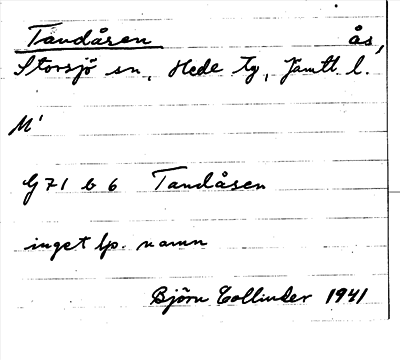 Tandåsen ås,
Storsjö sn, Hede tg, Jämtl. l.
M'
G 71 b 6 Tandåsen
inget lp. namn
Björn Collinder 1941